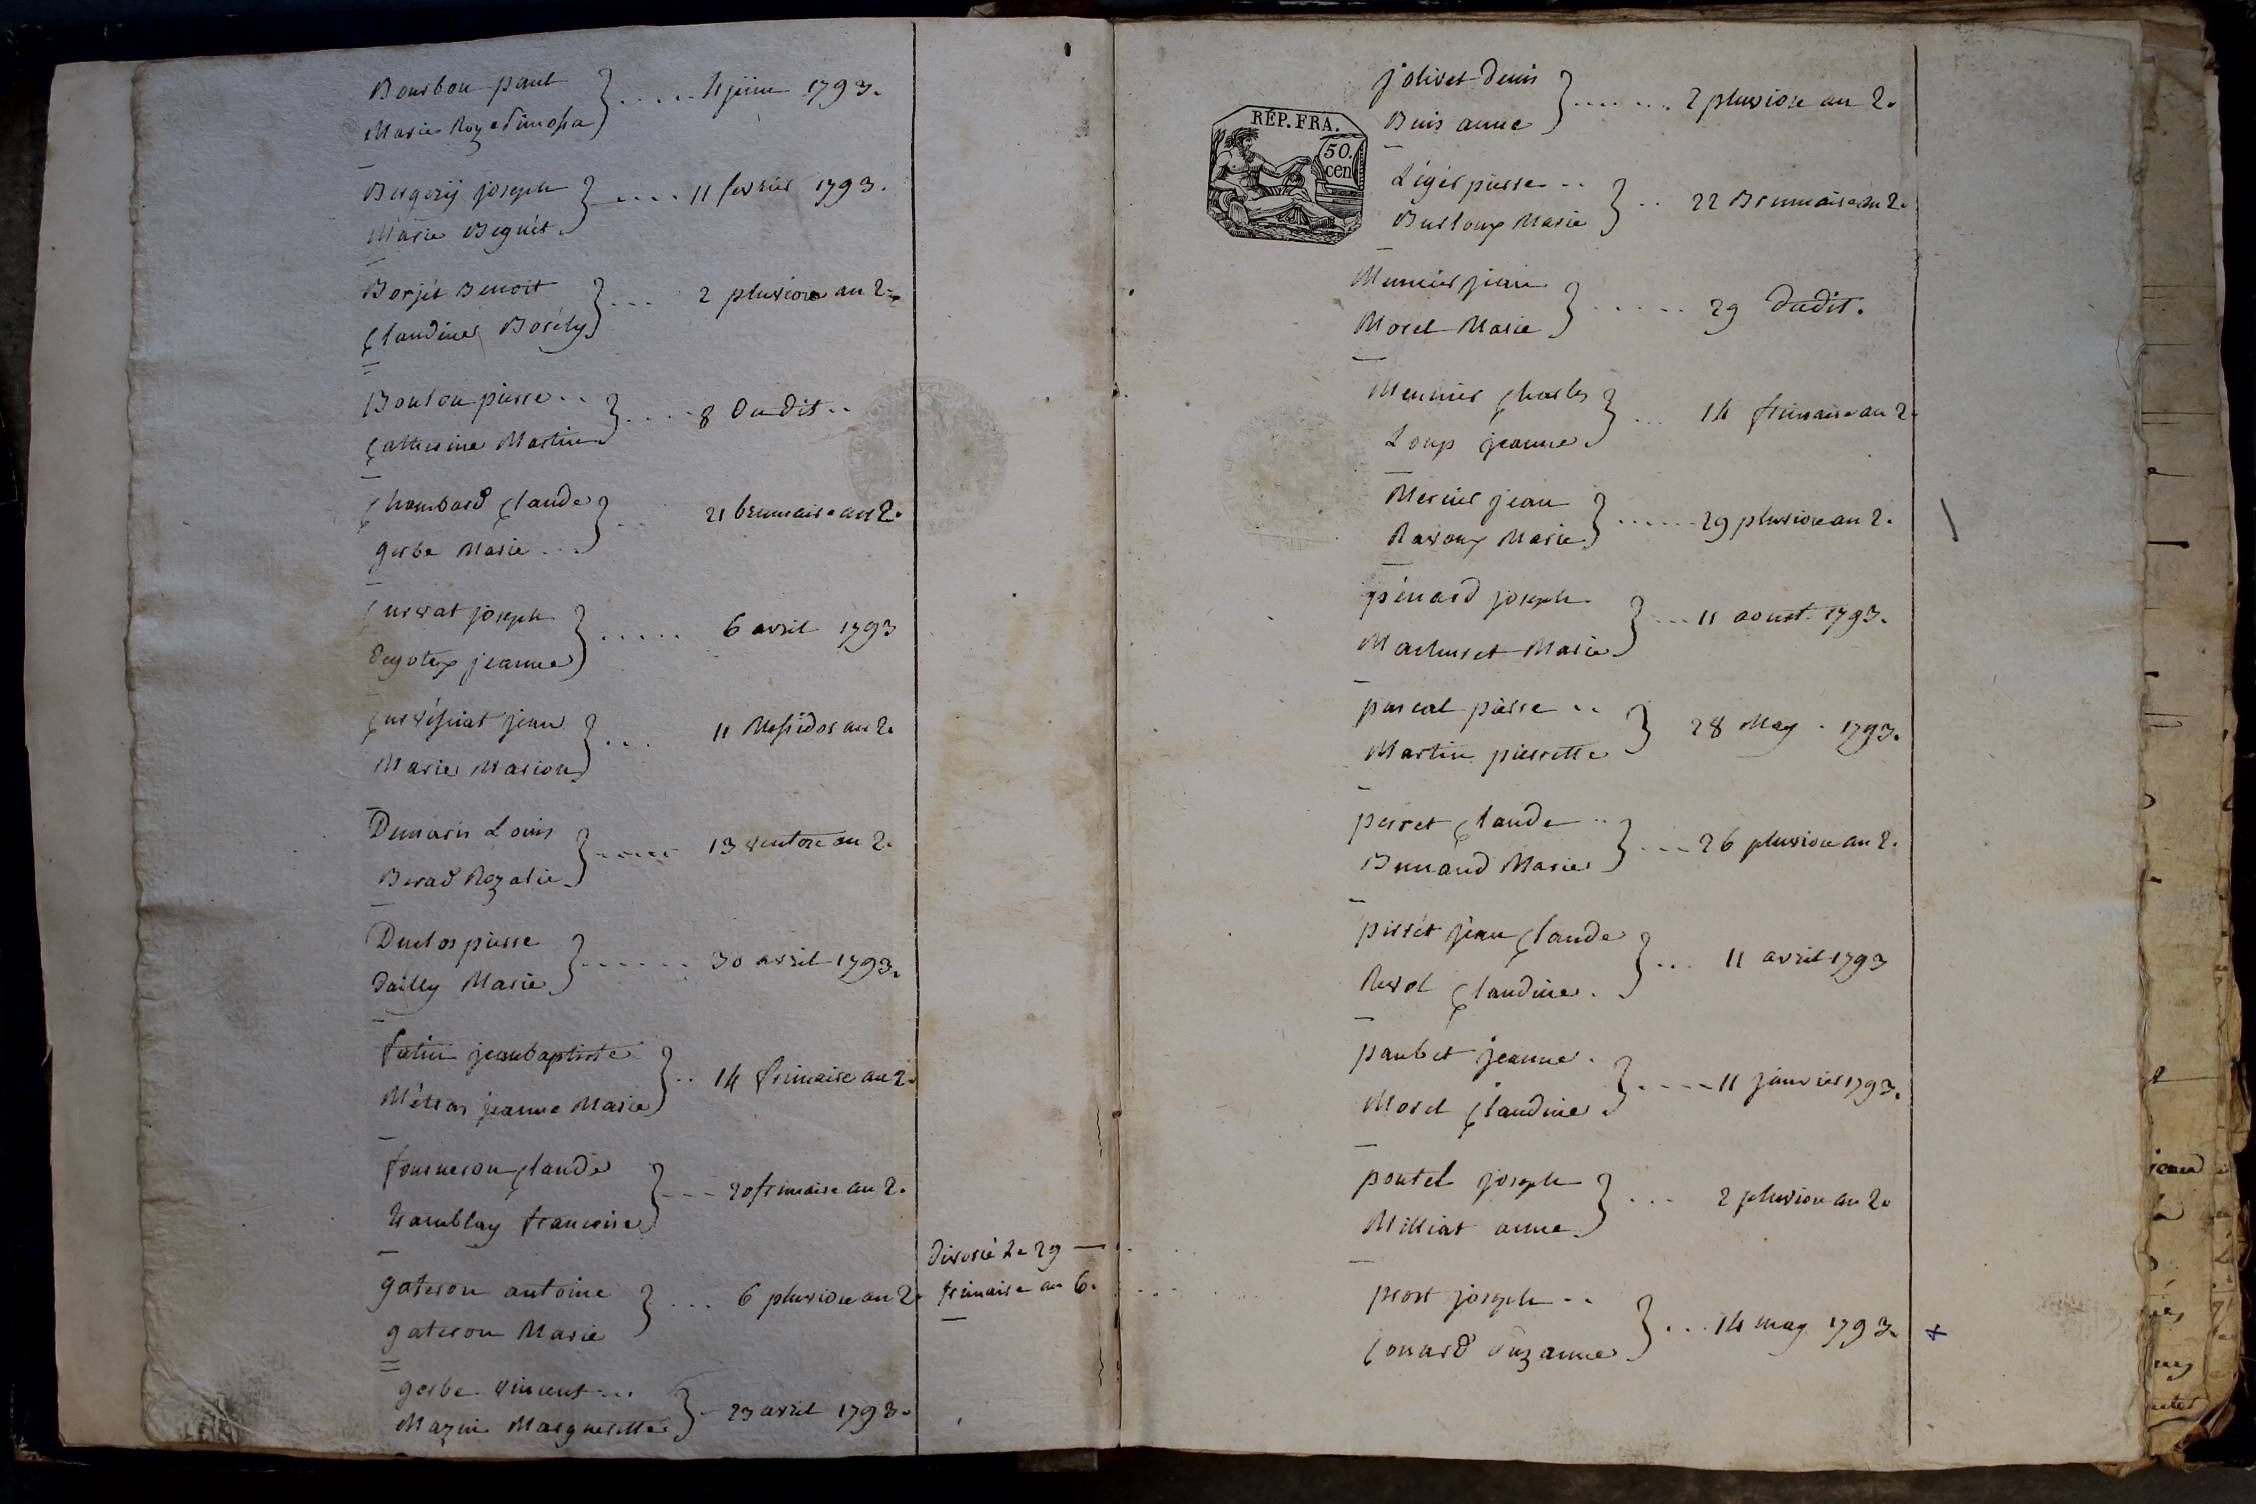 Bourbon paul
Marie Roze
4 juin 1793.
joseph
Marie Beguét
11 fevrier 1793.
Borjét Benoit
Claudine Borély
2 pluviose an 2.
Bouton pierre
Catherine Martin
8 dudit
Chambard Claude
gerbe Marie
21 brumaire an 2.
Curvat joseph
jeanne
6 avril 1793
jean
Marie Marion
11 Messidor an 2.
Demaris Louis
Berad Rozalie
13 ventose an 2.
Duclos pierre
Dailly Marie
30 avril 1793.
futin jeanbaptiste
Métras jeanne Marie
14 frimaire an 2.
fourneron Claude
tramblay francoise
20 frimaire an 2.
gateron antoine
gateron Marie
6 pluviose an 2.
divorcé le 29
frimaire an 6.
gerbe vincent
Mazin Margueritte
23 avril 1793.
RÉP. FRA.
50.
cen
jolivet denis
Buis anne
2 pluviose an 2.
Légér pierre
Burtoux Marie
22 Brumaire an 2.
Meunier jean
Morel Marie
29 dudit.
Meunier Charles
Loup jeanne
14 frimaire an 2.
Mercier jean
Ravoux Marie
29 pluviose an 2.
pénard joseph
Machuret Marie
11 aoust 1793.
pascal pierre
Martin pierrette
28 May 1793.
perret Claude
Bunand Marie
26 pluviose an 2.
perrét jean Claude
Revol Claudine
11 avril 1793
paubet jeanne
Morel Claudine
11 janvier 1793.
pontet joseph
Milliat anne
2 pluviose an 2.
prost joseph
Conard Suzanne
14 may 1793.